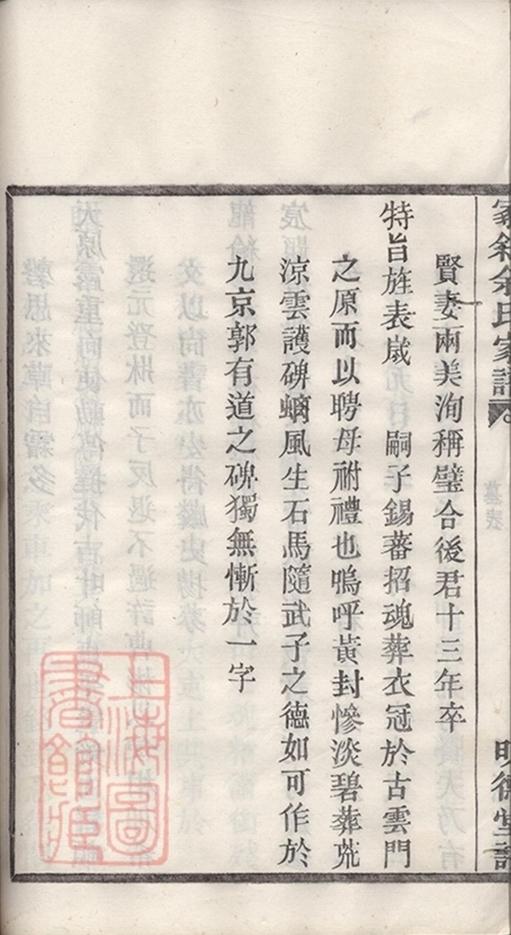 賢妻兩美洵稱璧合後君十三年卒
特旨旌表歲　嗣子錫蕃招魂葬衣冠於古雲門
之原而以聘母祔禮也嗚呼黃封慘淡碧葬荒
涼雲護碑螭風生石馬隨武子之德如可作於
九京郭有道之碑獨無慚於一字
余氏家譜
墓表
明德堂譜
上海圖書館藏